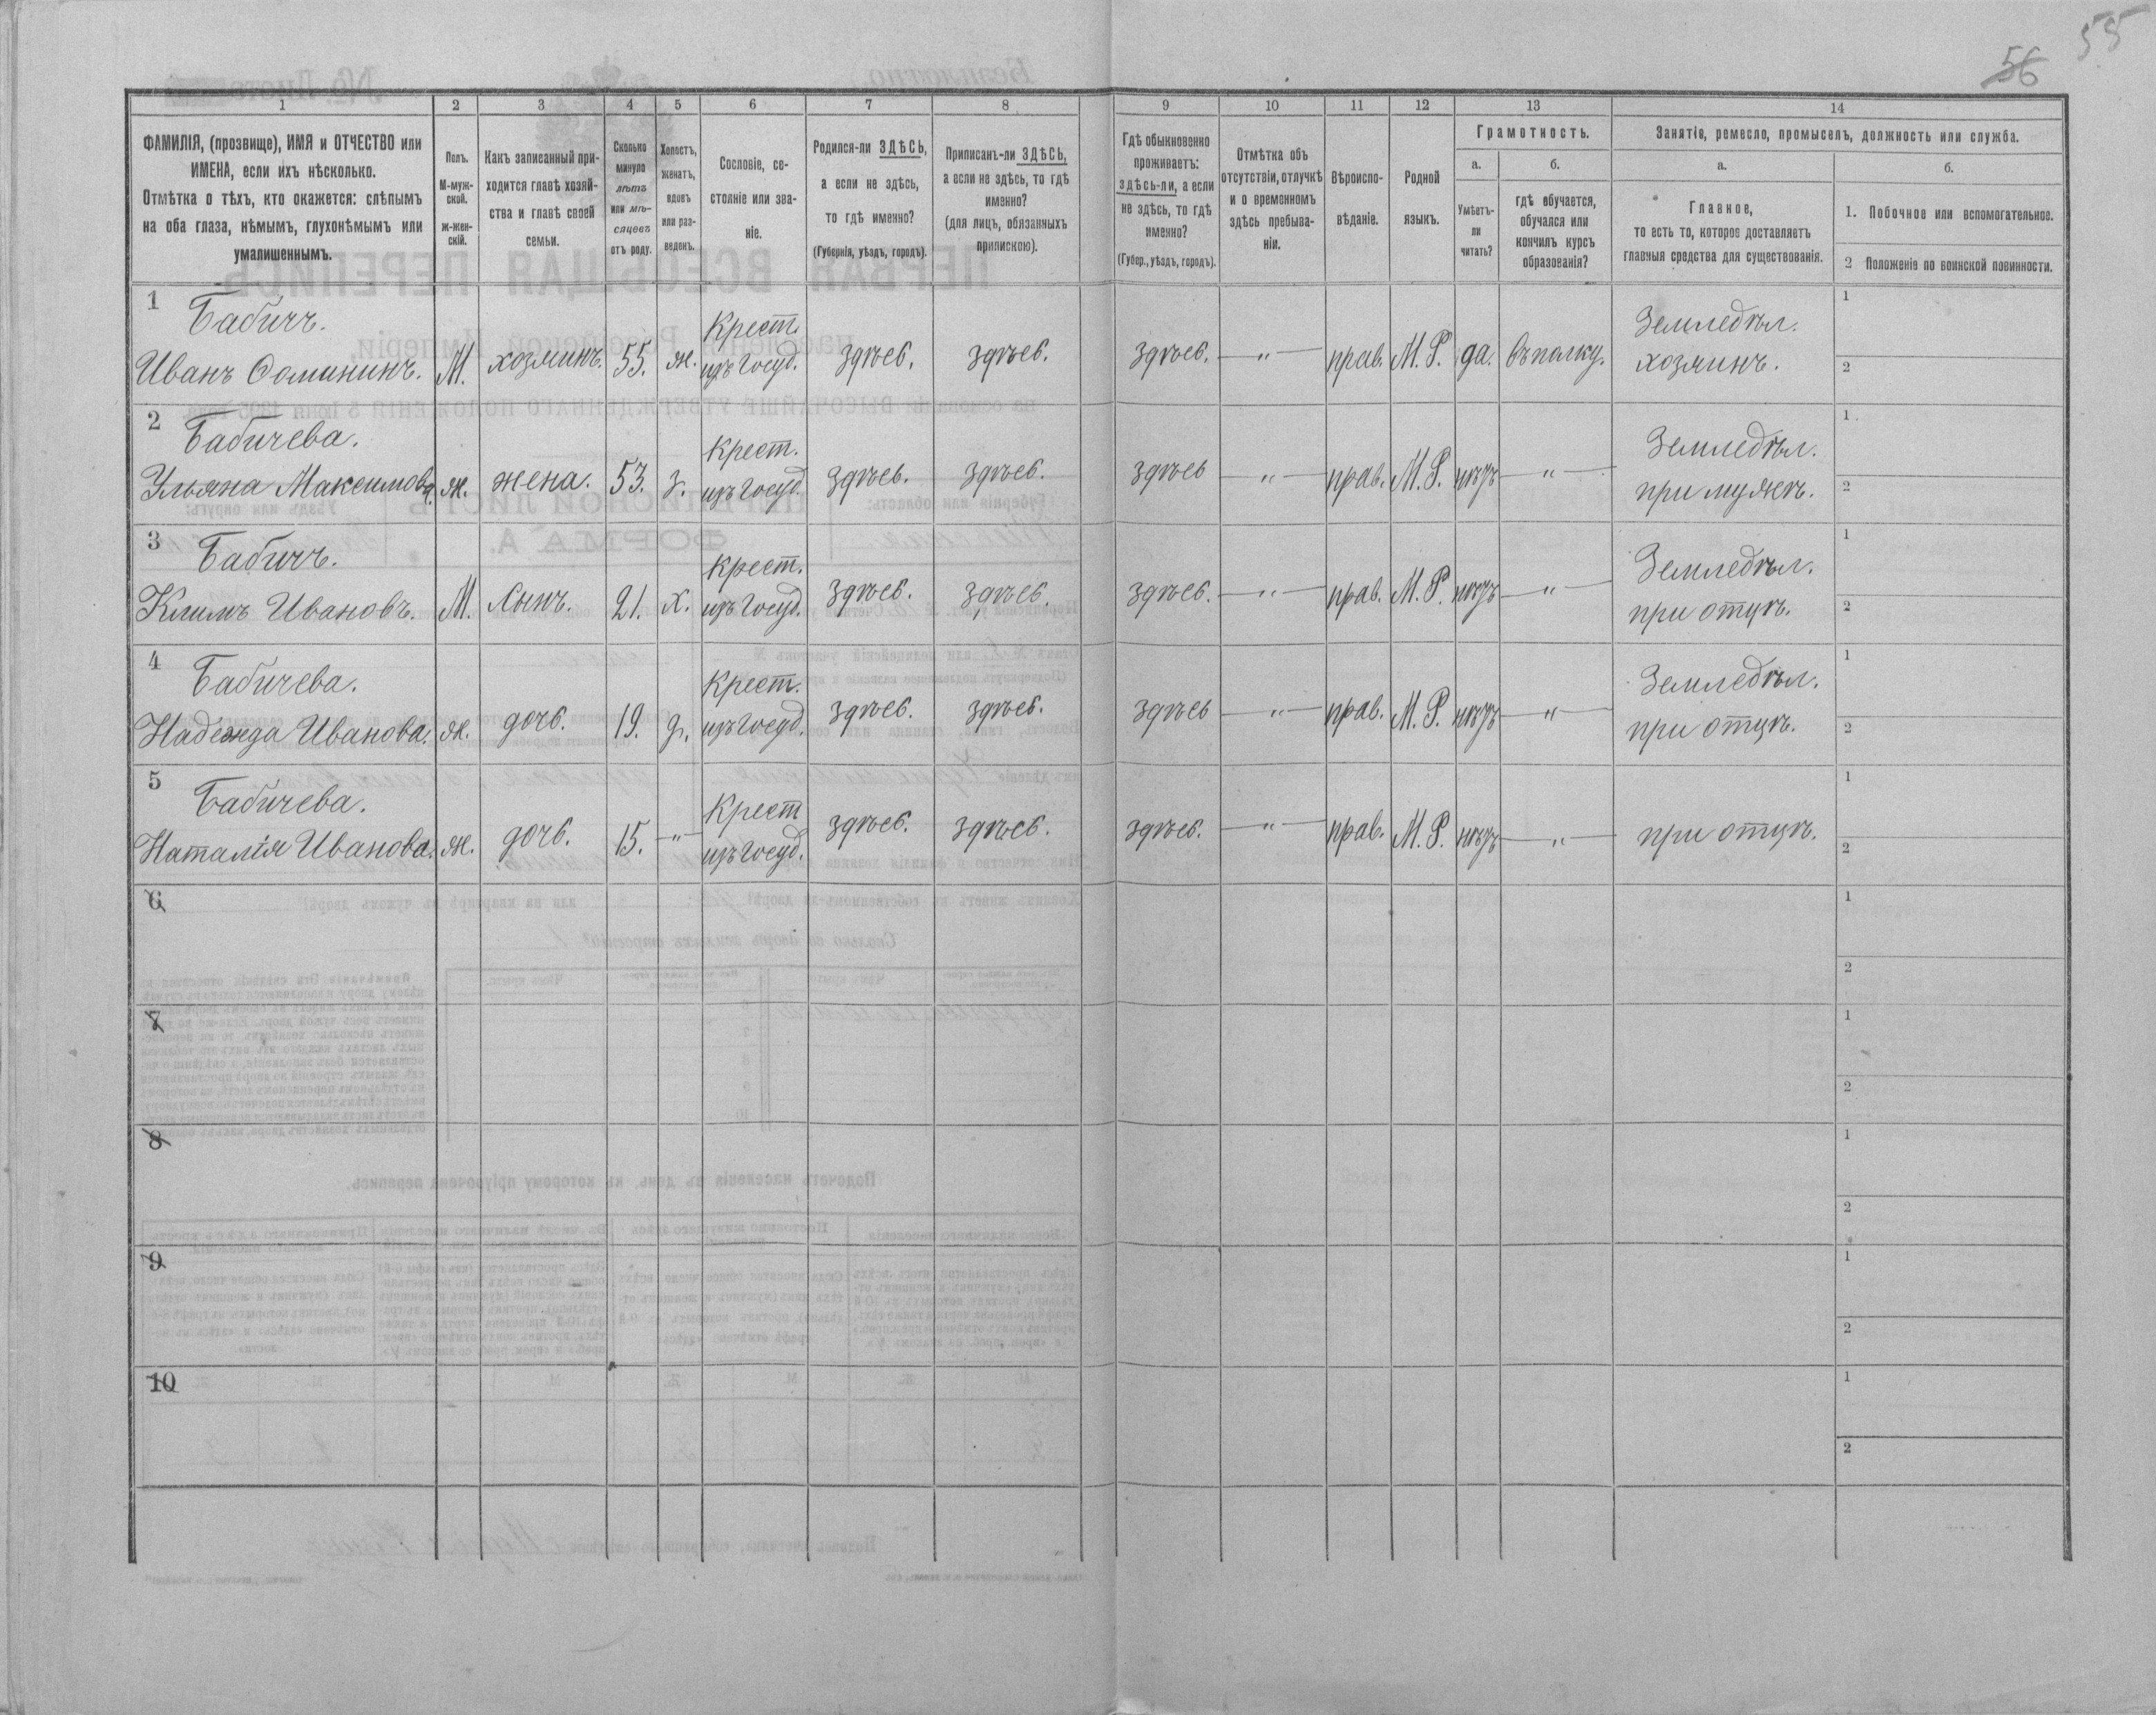 55
56
1 2 3 4 5 6 7 8 9 10 11 12 13 14
ФАМИЛІЯ, (прозвище), ИМЯ и ОТЧЕСТВО или
ИМЕНА, если ихъ нѣсколько.
Отмѣтка о тѣхъ, кто окажется: слѣпымъ
на оба глаза, нѣмымъ, глухонѣмымъ или
умалишеннымъ.
Полъ.
М-муж-
ской.
ж-жен-
скій.
Какъ записанный при-
ходится главѣ хозяй-
ства и главѣ своей
семьи.
Сколько
минуло
лѣтъ
или мѣ-
сяцевъ
отъ роду.
Холостъ,
женатъ,
вдовъ
или раз-
веденъ.
Сословіе, со-
стояніе или зва-
ніе.
Родился-ли ЗДѢСЬ,
а если не здѣсь,
то гдѣ именно?
(Губернія, уѣздъ, городъ).
Приписанъ-ли ЗДѢСЬ,
а если не здѣсь, то гдѣ
именно?
(для лицъ, обязанныхъ
припискою).
Гдѣ обыкновенно
проживаетъ:
здѣсь-ли, а если
не здѣсь, то гдѣ
именно?
(Губер., уѣздъ, городъ).
Отмѣтка объ
отсутствіи, отлучкѣ
и о временномъ
здѣсь пребыва-
ніи.
Вѣроиспо-
вѣданіе.
Родной
языкъ.
Грамотность.
а.
Умѣетъ-
ли
читать?
б.
гдѣ обучается,
обучался или
кончилъ курсъ
образованія?
Занятіе, ремесло, промыселъ, должность или служба.
а.
Главное,
то есть то, которое доставляетъ
главныя средства для существованія.
б.
1. Побочное или вспомогательное.
2 Положеніе по воинской повинности.
1 Бабичъ. Крест. Земледѣл. 1
Иванъ Фомининъ. М. хозяинъ. 55. ж. изъ Госуд. здѣсь. здѣсь. здѣсь. — " — прав. М. Р. да. въ полку. хозяинъ. 2
2 Бабичева. Крест. Земледѣл. 1
Ульяна Максимова. ж. жена. 53. з. изъ Госуд. здѣсь. здѣсь. здѣсь — " — прав. М. Р. нѣтъ — " — при мужѣ. 2
3 Бабичъ. Крест. Земледѣл. 1
Климъ Ивановъ. М. Сынъ. 21. х. изъ Госуд. здѣсь. здѣсь. здѣсь. — " — прав. М. Р. нѣтъ — " — при отцѣ. 2
4 Бабичева. Крест. Земледѣл. 1
Надежда Иванова. ж. дочь. 19. д. изъ Госуд. здѣсь. здѣсь. здѣсь — " — прав. М. Р. нѣтъ — " — при отцѣ. 2
5 Бабичева. Крест 1
Наталія Иванова. ж. дочь. 15. — " — изъ Госуд. здѣсь. здѣсь. здѣсь. — " — прав. М. Р. нѣтъ — " — при отцѣ. 2
6 1
2
7 1
2
8 1
2
9 1
2
10 1
2